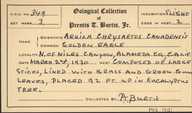 Oological Collection
of
Prentis T. Burtis, Jr.
No. 349
Set 2
Aquila Chrysaetos Canadensis
Golden Eagle
N. of Niles Canyon, Alameda Co, Calif.
March 23rd, 1930. Composed of large
sticks, lined with grass and green gum
leaves, placed 92 ft. up in Eucalyptus
tree.
Collected by P. Burtis